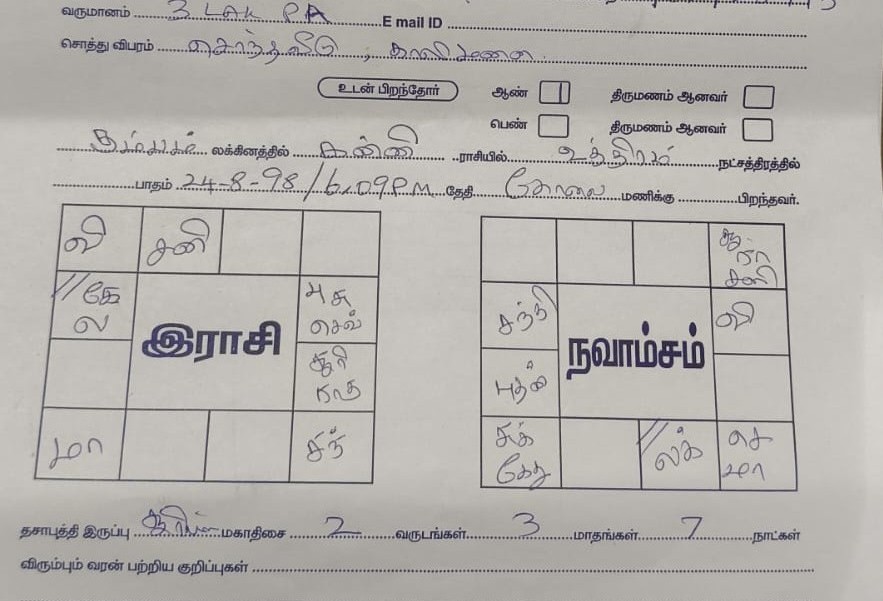 வருமானம் 3 LAK PA E mail ID
சொத்து விபரம் சொந்தவீடு, காலிமனை
உடன் பிறந்தோர் ஆண் | திருமணம் ஆனவர்
பெண் திருமணம் ஆனவர்
கும்பம் லக்கினத்தில் கன்னி ராசியில் உத்திரம் நட்சத்திரத்தில்
பாதம் 24-8-98/6.09PM தேதி மணிக்கு பிறந்தவர்.
வி சனி
கே ல
புசு செவ்
இராசி
சூரி ராகு
மா சந்
சூ ரா சனி
சந்தி வி
நவாம்சம்
புதன்
சுக் கேது லக் செ மா
தசாபுத்தி இருப்பு சூரியன் மகாதிசை 2 வருடங்கள் 3 மாதங்கள் 7 நாட்கள்
விரும்பும் வரன் பற்றிய குறிப்புகள்